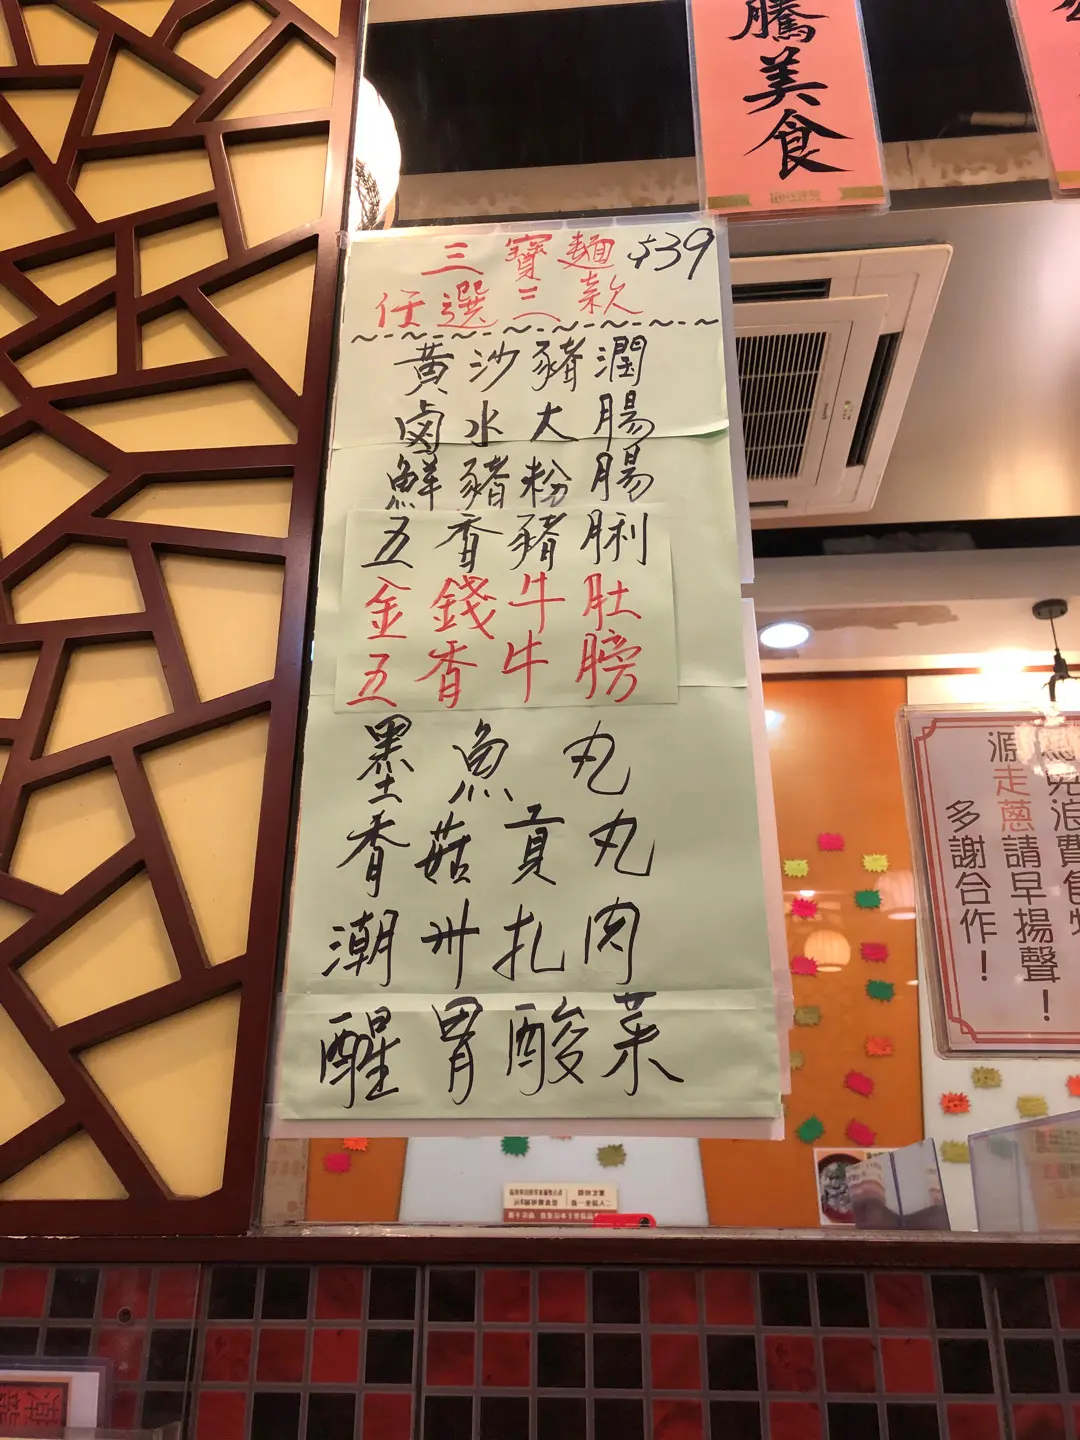 騰美食
三寶麵 $39
任選三款
黃沙豬潤
鹵水大腸
鮮豬粉腸
五香豬脷
金錢牛肚
五香牛膀
墨魚丸
香菇貢丸
潮州扎肉
醒胃酸菜
源
走蔥請早揚聲！
多謝合作！